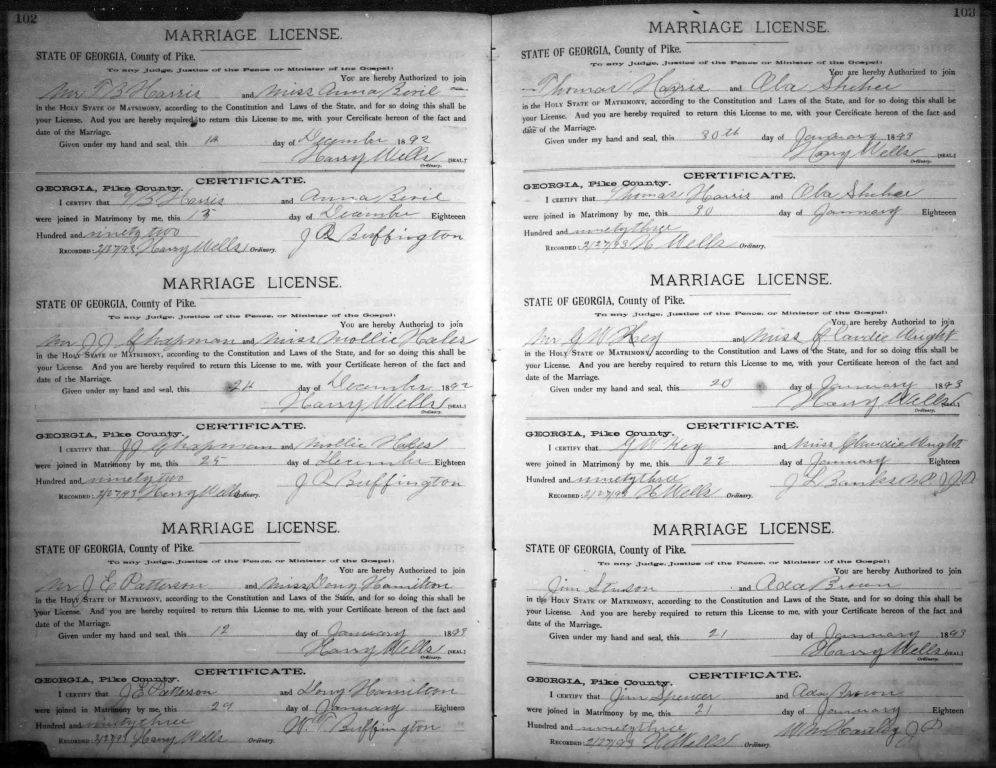 102
MARRIAGE LICENSE.
STATE OF GEORGIA, County of Pike.
To any Judge, Justice of the Peace, or Minister of the Gospel:
You are hereby Authorized to join
Mr T B Harris and Miss Anna
in the Holy State of Matrimony, according to the Constitution and Laws of the State, and for so doing this shall be
your License. And you are hereby required to return this License to me, with your Cercificate hereon of the fact and
date of the Marriage.
Given under my hand and seal, this day of Decembr 1892
Harry Wells [SEAL]
Ordinary.
CERTIFICATE.
GEORGIA, Pike County.
I certify that T B Harris and Anna
were joined in Matrimony by me, this 15 day of Decembr Eighteen
Hundred and ninety two J R Buffington
Recorded: 2/27/93 Harry Wells Ordinary.
MARRIAGE LICENSE.
STATE OF GEORGIA, County of Pike.
To any Judge, Justice of the Peace, or Minister of the Gospel:
You are hereby Authorized to join
Mr J. J. Chapman and Miss Mollie Hales
in the Holy State of Matrimony, according to the Constitution and Laws of the State, and for so doing this shall be
your License. And you are hereby required to return this License to me, with your Certificate hereon of the fact and
date of the Marriage.
Given under my hand and seal, this 24 day of Decembr 1892
Harry Wells [SEAL]
Ordinary.
CERTIFICATE.
GEORGIA, Pike County.
I certify that J J Chapman and Mollie Hales
were joined in Matrimony by me, this 25 day of Decembr Eighteen
Hundred and ninety two J R Buffington
Recorded: 2/27/93 Harry Wells Ordinary.
MARRIAGE LICENSE.
STATE OF GEORGIA, County of Pike.
To any Judge, Justice of the Peace, or Minister of the Gospel:
You are hereby Authorized to join
Mr J. E Patterson and Miss Dony Hamilton
in the Holy State of Matrimony, according to the Constitution and Laws of the State, and for so doing this shall be
your License. And you are hereby required to return this License to me, with your Certificate hereon of the fact and
date of the Marriage.
Given under my hand and seal, this 12 day of January 1893
Harry Wells [SEAL]
Ordinary.
CERTIFICATE.
GEORGIA, Pike County.
I certify that J E Patterson and Dony Hamilton
were joined in Matrimony by me, this 29 day of January Eighteen
Hundred and ninety three W. T. Buffington
Recorded: 2/27/93 Harry Wells Ordinary.
103
MARRIAGE LICENSE.
STATE OF GEORGIA, County of Pike.
To any Judge, Justice of the Peace or Minister of the Gospel:
You are hereby Authorized to join
Thomas Harris and Oba
in the Holy State of Matrimony, according to the Constitution and Laws of the State, and for so doing this shall be
your License. And you are hereby required to return this License to me, with your Cercificate hereon of the fact and
date of the Marriage.
Given under my hand and seal, this 30th day of January 1893
Harry Wells [SEAL]
Ordinary.
CERTIFICATE.
GEORGIA, Pike County.
I certify that Thomas Harris and Oba
were joined in Matrimony by me, this 30 day of January Eighteen
Hundred and ninety three
Recorded: 2/27/93 H Wells Ordinary.
MARRIAGE LICENSE.
STATE OF GEORGIA, County of Pike.
To any Judge, Justice of the Peace, or Minister of the Gospel:
You are hereby Authorized to join
Mr J W Key and Miss Claudie Wright
in the Holy State of Matrimony, according to the Constitution and Laws of the State, and for so doing this shall be
your License. And you are hereby required to return this License to me, with your Certificate hereon of the fact and
date of the Marriage.
Given under my hand and seal, this 20 day of January 1893
Harry Wells [SEAL]
Ordinary.
CERTIFICATE.
GEORGIA, Pike County.
I certify that J W Key and Miss Claudie Wright
were joined in Matrimony by me, this 22 day of January Eighteen
Hundred and ninety three J L
Recorded: 2/27/93 H Wells Ordinary.
MARRIAGE LICENSE.
STATE OF GEORGIA, County of Pike.
To any Judge, Justice of the Peace, or Minister of the Gospel:
You are hereby Authorized to join
Jim and Ada Brown
in the Holy State of Matrimony, according to the Constitution and Laws of the State, and for so doing this shall be
your License. And you are hereby required to return this License to me, with your Certificate hereon of the fact and
date of the Marriage.
Given under my hand and seal, this 21 day of January 1893
Harry Wells [SEAL]
Ordinary.
CERTIFICATE.
GEORGIA, Pike County.
I certify that Jim Spencer and Ada Brown
were joined in Matrimony by me, this 21 day of January Eighteen
Hundred and ninety three W M Hartley J P
Recorded: 2/27/93 H Wells Ordinary.